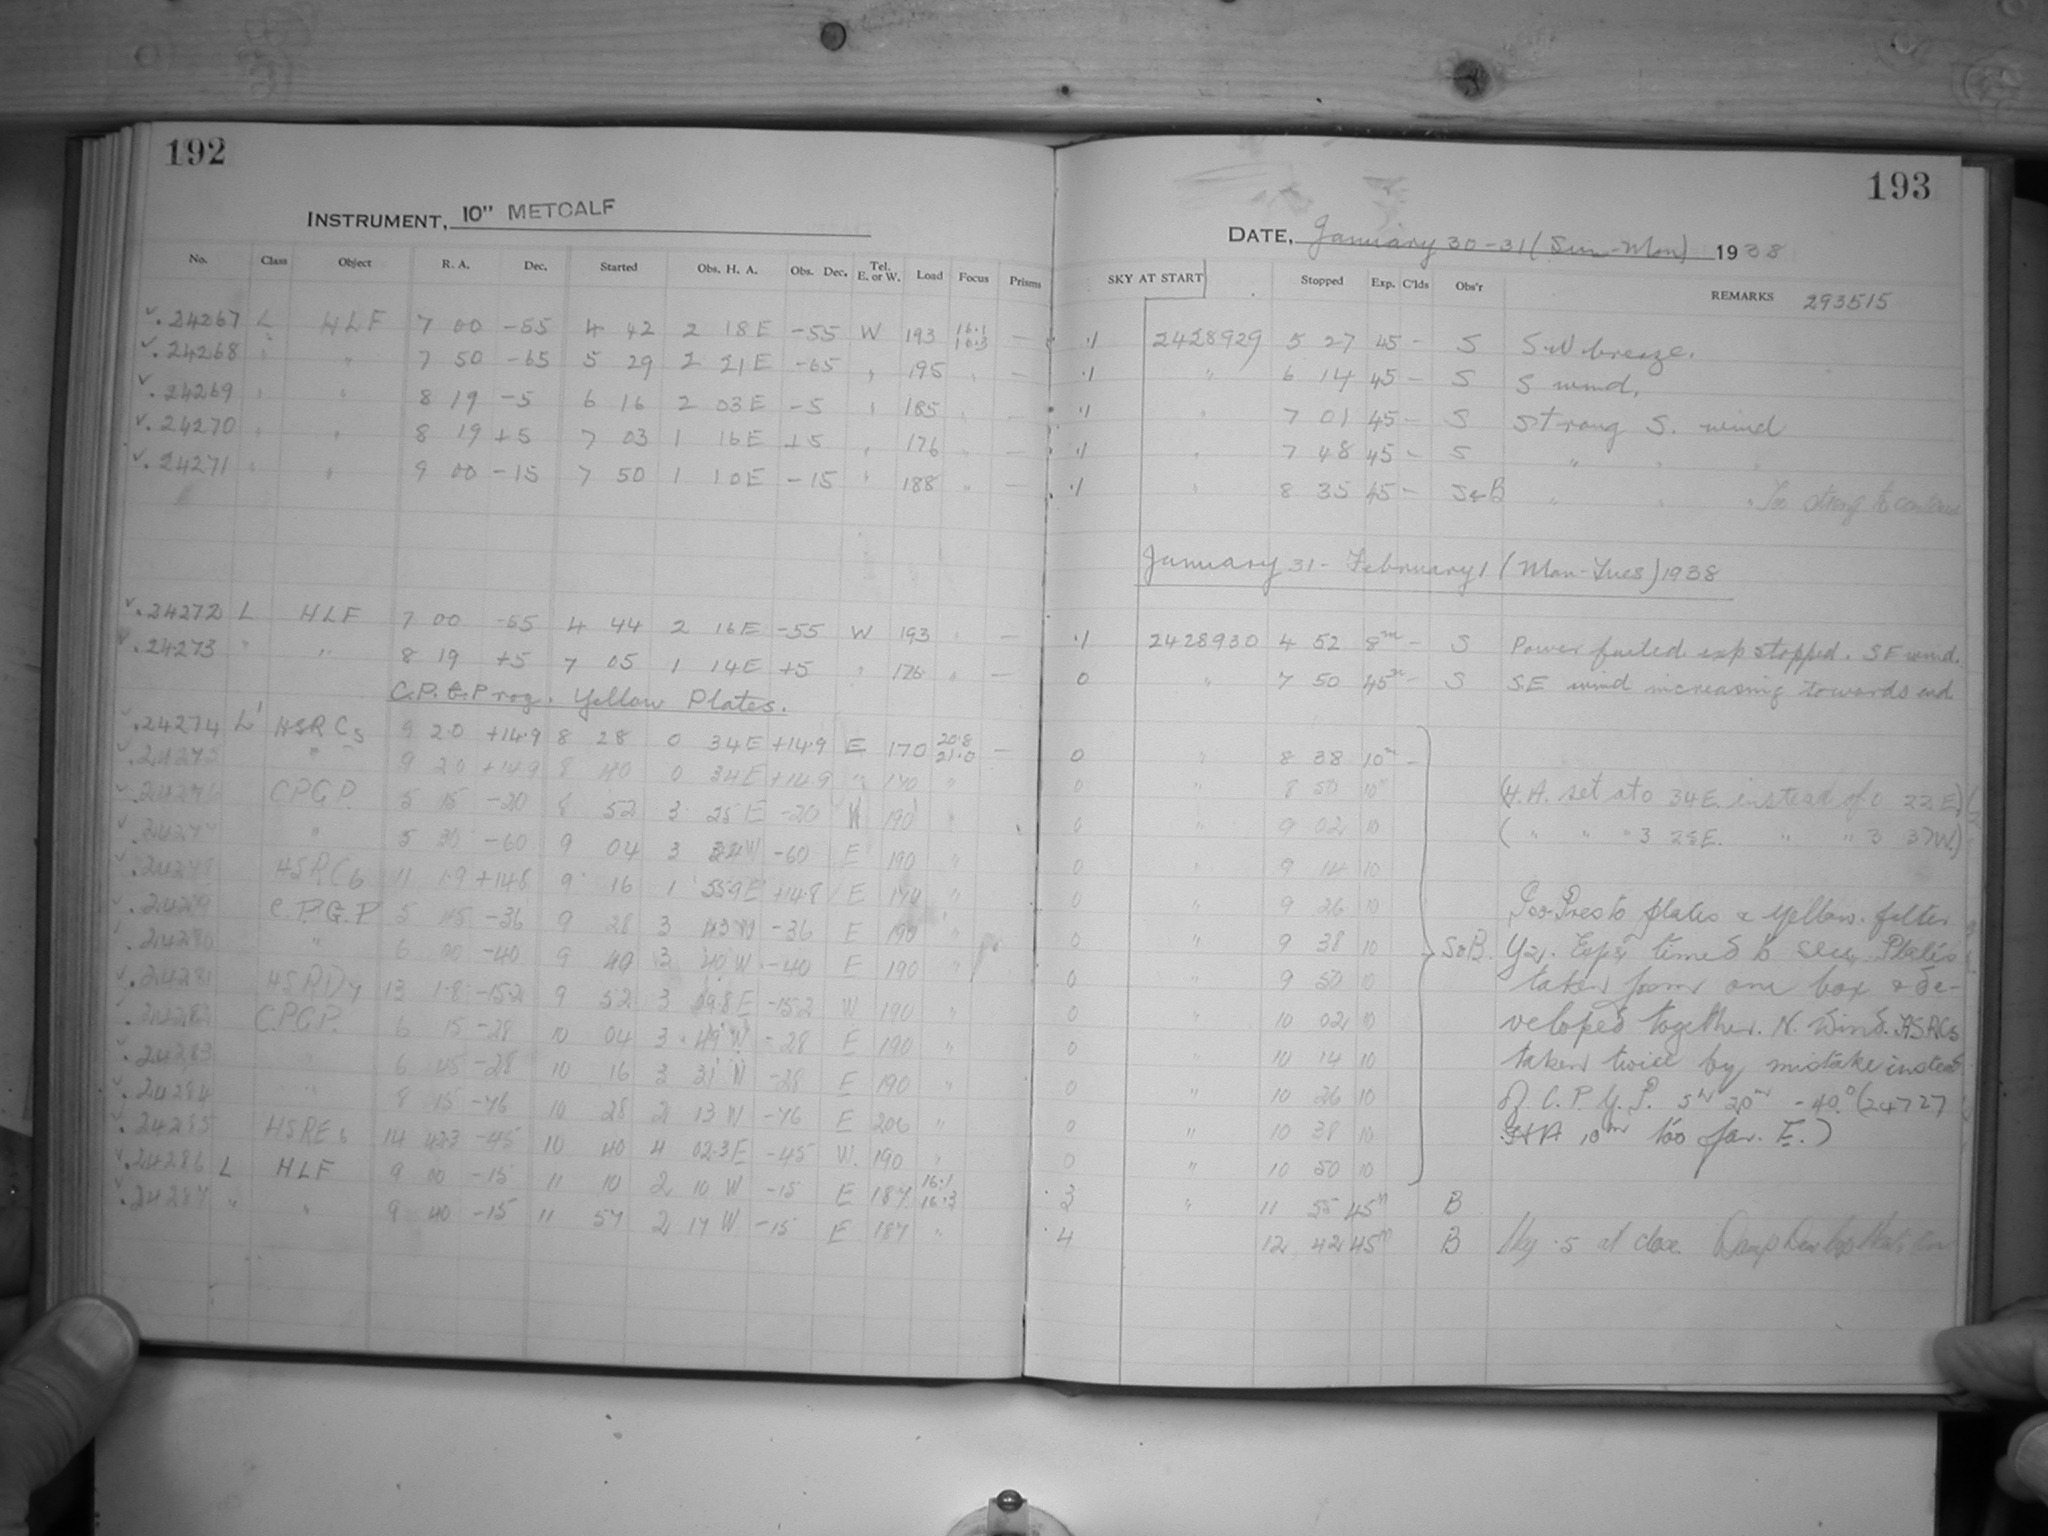 192
INSTRUMENT, 10" METCALF
No. Class Object R. A. Dec. Started Obs. H. A. Obs. Dec. Tel. E. or W. Load Focus Prisms
24267 L HLF 7 00 -55 4 42 2 18E -55 W 193 16.1 16.3 —
24268 " " 7 50 -65 5 29 2 21E -65 " 195 " —
24269 " " 8 19 -5 6 16 2 03E -5 " 185 " —
24270 " " 8 19 +5 7 03 1 16E +5 " 176 " —
24271 " " 9 00 -15 7 50 1 10E -15 " 188 " —
24272 L HLF 7 00 -55 4 44 2 16E -55 W 193 " —
24273 " " 8 19 +5 7 05 1 14E +5 " 176 " —
C.P.G.Prog. Yellow Plates.
24274 L' HSRC5 9 20 +14.9 8 28 0 34E +14.9 E 170 20.8 21.0 —
24275 " 9 20 +14.9 8 40 0 34E +14.9 " 170 "
24276 CPGP. 5 15 -20 8 52 3 25E -20 W 190 "
24277 " 5 30 -60 9 04 3 W -60 E 190 "
24278 HSRC6 11 1.9 +14.8 9 16 1 55.9E +14.8 E 170 "
24279 C.P.G.P 5 45 -36 9 28 3 43W -36 E 190 "
24280 " 6 00 -40 9 40 3 40W -40 E 190 "
24281 HSRD7 13 1.8 -15.2 9 52 3 09.8E -15.2 W 190 "
24282 C.P.G.P. 6 15 -28 10 04 3 49W -28 E 190 "
24283 " 6 45 -28 10 16 3 31W -28 E 190 "
24284 " 8 15 -76 10 28 2 13W -76 E 206 "
24285 HSRE6 14 42.3 -45 10 40 4 02.3E -45 W. 190 "
24286 L HLF 9 00 -15 11 10 2 10W -15 E 187 16.1 16.3
24287 " " 9 40 -15 11 57 2 17W -15 E 187 "
193
DATE, January 30-31 (Sun-Mon) 1938
SKY AT START Stopped Exp. C'lds Obs'r REMARKS 293515
.1 2428929 5 27 45 - S SW breeze.
.1 " 6 14 45 - S S wind.
.1 " 7 01 45 - S Strong S. wind
.1 " 7 48 45 - S " " "
.1 " 8 35 45 - S&B " " " Too strong to continue
January 31 - February 1 (Mon-Tues) 1938
.1 2428930 4 52 8m - S Power failed exp stopped. SE wind.
0 " 7 50 45m - S SE wind increasing towards end
0 " 8 38 10m -
0 " 8 50 10m (H.A. set at 0 34E. instead of 0 22E.)
0 " 9 02 10 ( " " " 3 25E. " " 3 37W.)
0 " 9 14 10
0 " 9 26 10 Iso-Presto plates & yellow filter
0 " 9 38 10 S&B. Y2. Exps timed to secs. Plates
0 " 9 50 10 taken from one box & de-
0 " 10 02 10 veloped together. N. Wind. HSRC5
0 " 10 14 10 taken twice by mistake instead
0 " 10 26 10 of C.P.G.P. 5h 20m -40.° (24727
0 " 10 38 10 HA 10m too far. E.)
0 " 10 50 10
.3 " 11 55 45m B
.4 12 42 45m B Sky .5 at close.